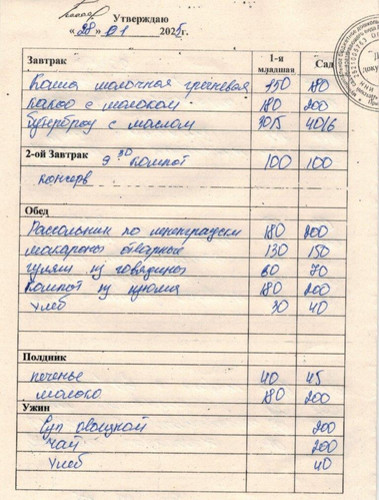 Утверждаю
« 28 » 01 2025г.
Завтрак 1-я младшая Сад
Каша молочная гречневая 150 180
какао с молоком 180 200
бутерброд с маслом 30/5 40/6
2-ой Завтрак 9 30 компот 100 100
консерв
Обед
Рассольник по ленинградски 180 200
макароны отварные 130 150
гуляш из говядины 60 70
Компот из изюма 180 200
хлеб 30 40
Полдник
печенье 40 45
молоко 180 200
Ужин
Суп овощной 200
чай 200
хлеб 40